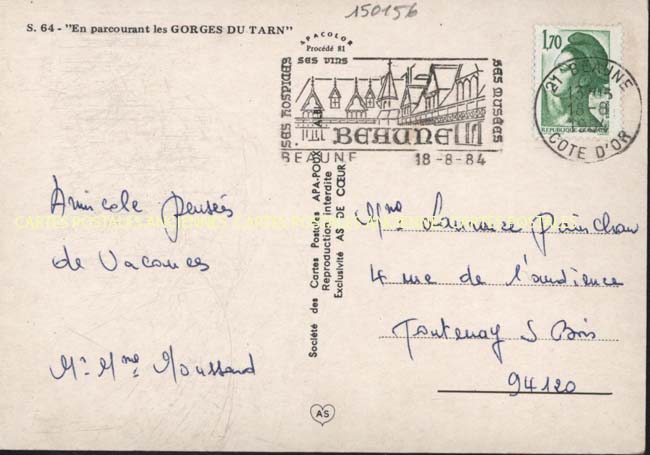 150156
S. 64 - "En parcourant les GORGES DU TARN"
APACOLOR
Procédé 81
SES HOSPICES
SES VINS
SES MUSÉES
BEAUNE
BEAUNE 18-8-84
1,70
21 BEAUNE
18-8
COTE D'OR
Société des Cartes Postales APA-POUX ALBI
Reproduction interdite
Exclusivité AS DE CŒUR
Amicale pensées
de Vacances
Mr Mme Moussand
Mme
4 rue de l'audience
Fontenay S Bois
94120
AS